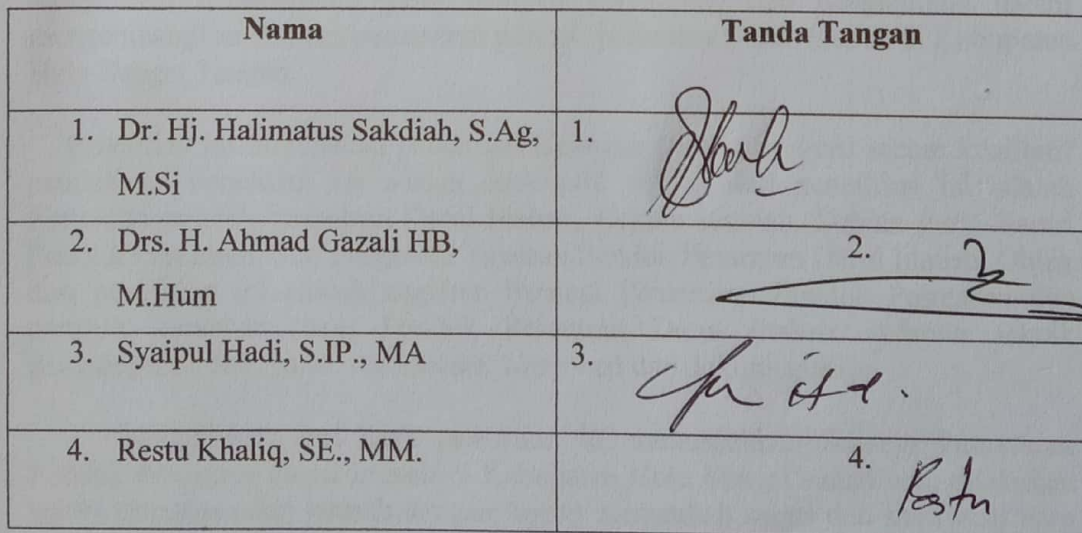 Nama Tanda Tangan
1. Dr. Hj. Halimatus Sakdiah, S.Ag, 1.
M.Si
2. Drs. H. Ahmad Gazali HB, 2.
M.Hum
3. Syaipul Hadi, S.IP., MA 3.
4. Restu Khaliq, SE., MM. 4.
Restu